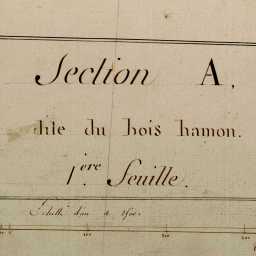 Section A,
dite du bois hamon.
1ère feuille.
Echelle d'un à